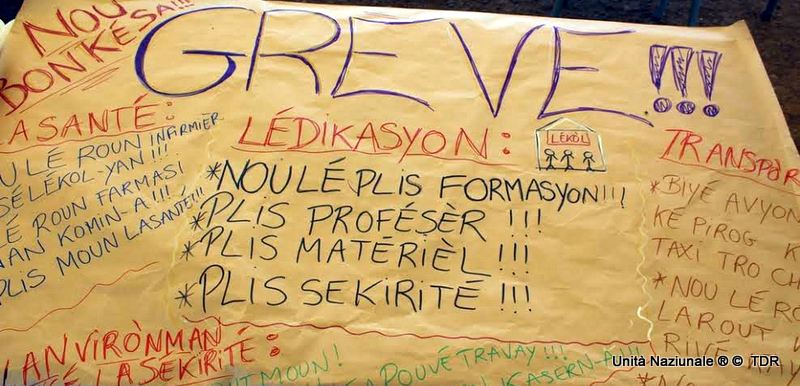 NOU
BON KÉSA!!!
GREVE!!!
LASANTÉ:
LÉ ROUN INFIRMIER
LÉKOL-YAN!!!
LÉ ROUN FARMASI
KOMIN-A!!!
PLIS MOUN LASANTÉ!!!
LÉDIKASYON:
LÉKÒL
*NOU LÉ PLIS FORMASYON!!!
*PLIS PROFÉSÈR!!!
*PLIS MATÉRIÈL!!!
*PLIS SEKIRITÉ!!!
TRANSPÒR
*BIYÉ AVYON
KÉ PIROG K
TAXI TRO CH
*NOU LÉ RO
LAROUT
RIVÉ
LANVIRÒNMAN
LASÉKIRITÉ:
MOUN!
POUVÉ TRAVAY!!!
KASERN-A!!!
Unità Naziunale ® © TDR